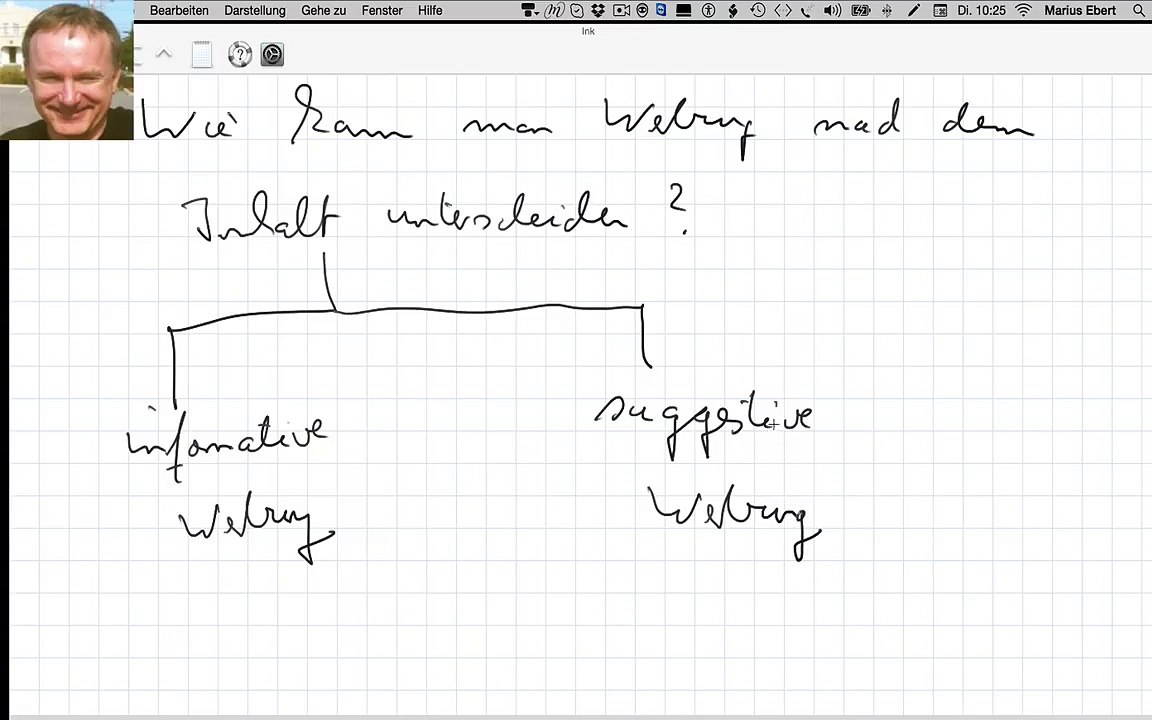 Bearbeiten Darstellung Gehe zu Fenster Hilfe Di. 10:25 Marius Ebert
Ink
Wie kann man Werbung nach dem
Inhalt unterscheiden ?
informative suggestive
Werbung Werbung